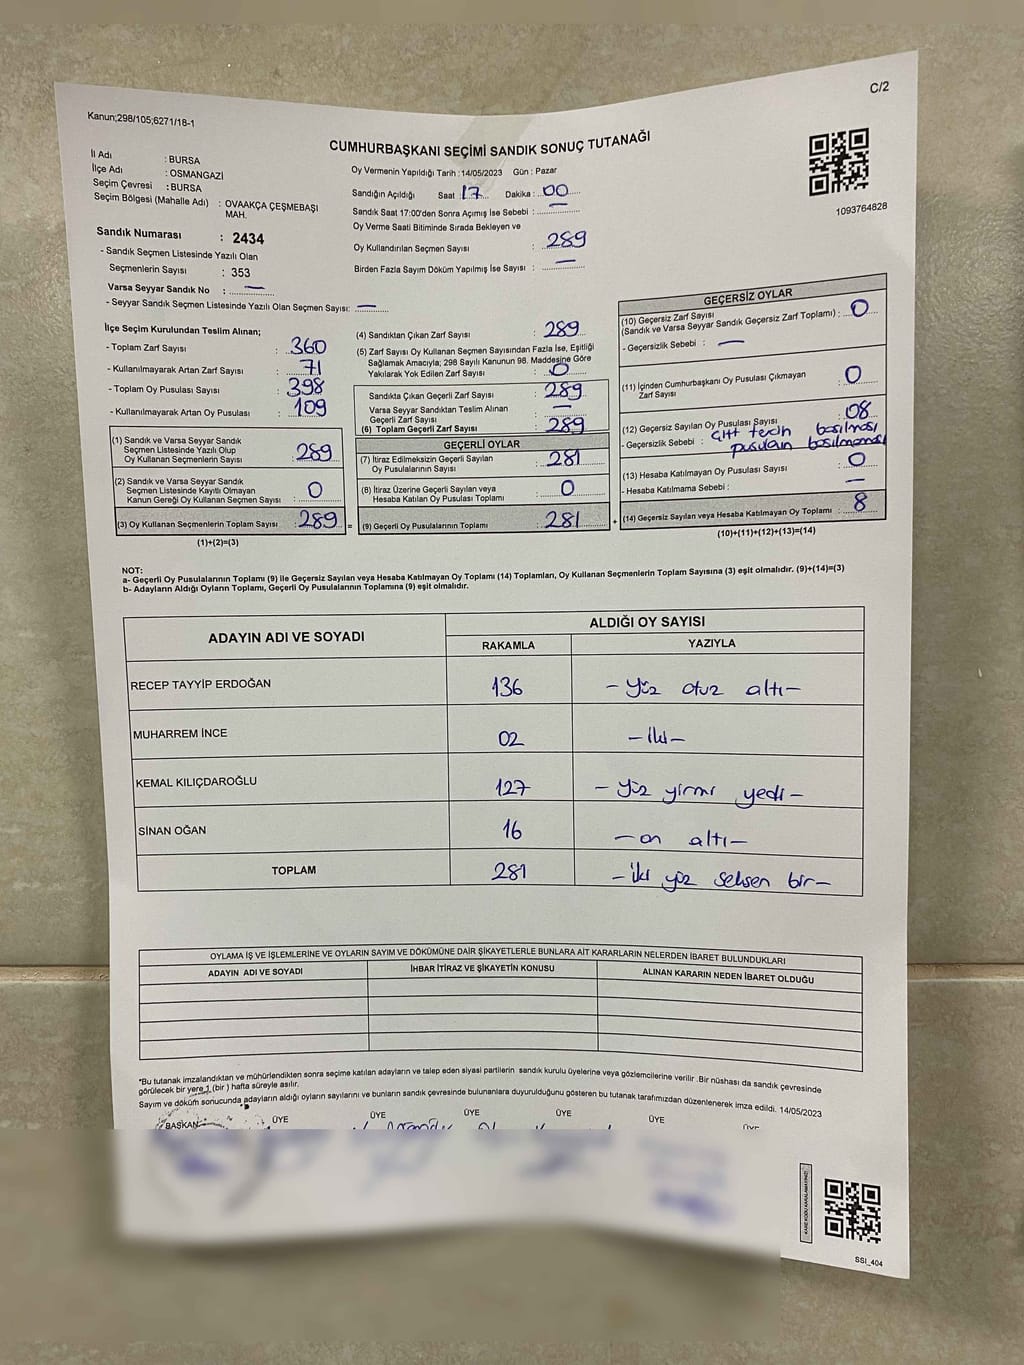 C/2
Kanun;298/105;6271/18-1
CUMHURBAŞKANI SEÇİMİ SANDIK SONUÇ TUTANAĞI
İl Adı : BURSA
İlçe Adı : OSMANGAZİ
Seçim Çevresi : BURSA
Seçim Bölgesi (Mahalle Adı) : OVAAKÇA ÇEŞMEBAŞI
MAH.
Sandık Numarası : 2434
- Sandık Seçmen Listesinde Yazılı Olan
Seçmenlerin Sayısı : 353
Varsa Seyyar Sandık No : —
- Seyyar Sandık Seçmen Listesinde Yazılı Olan Seçmen Sayısı: —
Oy Vermenin Yapıldığı Tarih :14/05/2023 Gün : Pazar
Sandığın Açıldığı Saat 17 Dakika : 00
Sandık Saat 17:00'den Sonra Açımış İse Sebebi : —
Oy Verme Saati Bitiminde Sırada Bekleyen ve
Oy Kullandırılan Seçmen Sayısı : 289
Birden Fazla Sayım Döküm Yapılmış İse Sayısı : —
1093764828
İlçe Seçim Kurulundan Teslim Alınan;
- Toplam Zarf Sayısı : 360
- Kullanılmayarak Artan Zarf Sayısı : 71
- Toplam Oy Pusulası Sayısı : 398
- Kullanılmayarak Artan Oy Pusulası : 109
(1) Sandık ve Varsa Seyyar Sandık
Seçmen Listesinde Yazılı Olup
Oy Kullanan Seçmenlerin Sayısı : 289
(2) Sandık ve Varsa Seyyar Sandık
Seçmen Listesinde Kayıtlı Olmayan
Kanun Gereği Oy Kullanan Seçmen Sayısı : 0
(3) Oy Kullanan Seçmenlerin Toplam Sayısı : 289
(1)+(2)=(3)
=
(4) Sandıktan Çıkan Zarf Sayısı : 289
(5) Zarf Sayısı Oy Kullanan Seçmen Sayısından Fazla İse, Eşitliği
Sağlamak Amacıyla; 298 Sayılı Kanunun 98. Maddesine Göre
Yakılarak Yok Edilen Zarf Sayısı : 0
Sandıkta Çıkan Geçerli Zarf Sayısı : 289
Varsa Seyyar Sandıktan Teslim Alınan
Geçerli Zarf Sayısı : —
(6) Toplam Geçerli Zarf Sayısı : 289
GEÇERLİ OYLAR
(7) İtiraz Edilmeksizin Geçerli Sayılan
Oy Pusulalarının Sayısı : 281
(8) İtiraz Üzerine Geçerli Sayılan veya
Hesaba Katılan Oy Pusulası Toplamı : 0
(9) Geçerli Oy Pusulalarının Toplamı : 281
+
GEÇERSİZ OYLAR
(10) Geçersiz Zarf Sayısı
(Sandık ve Varsa Seyyar Sandık Geçersiz Zarf Toplamı) : 0
- Geçersizlik Sebebi : —
(11) İçinden Cumhurbaşkanı Oy Pusulası Çıkmayan
Zarf Sayısı : 0
(12) Geçersiz Sayılan Oy Pusulası Sayısı : 08
- Geçersizlik Sebebi : Çift tercih basılması
pusulan basılmaması
(13) Hesaba Katılmayan Oy Pusulası Sayısı : 0
- Hesaba Katılmama Sebebi : —
(14) Geçersiz Sayılan veya Hesaba Katılmayan Oy Toplamı : 8
(10)+(11)+(12)+(13)=(14)
NOT:
a- Geçerli Oy Pusulalarının Toplamı (9) ile Geçersiz Sayılan veya Hesaba Katılmayan Oy Toplamı (14) Toplamları, Oy Kullanan Seçmenlerin Toplam Sayısına (3) eşit olmalıdır. (9)+(14)=(3)
b- Adayların Aldığı Oyların Toplamı, Geçerli Oy Pusulalarının Toplamına (9) eşit olmalıdır.
ADAYIN ADI VE SOYADI
ALDIĞI OY SAYISI
RAKAMLA YAZIYLA
RECEP TAYYİP ERDOĞAN 136 – Yüz otuz altı –
MUHARREM İNCE 02 – iki –
KEMAL KILIÇDAROĞLU 127 – Yüz yirmi yedi –
SİNAN OĞAN 16 – on altı –
TOPLAM 281 – iki yüz seksen bir –
OYLAMA İŞ VE İŞLEMLERİNE VE OYLARIN SAYIM VE DÖKÜMÜNE DAİR ŞİKAYETLERLE BUNLARA AİT KARARLARIN NELERDEN İBARET BULUNDUKLARI
ADAYIN ADI VE SOYADI İHBAR İTİRAZ VE ŞİKAYETİN KONUSU ALINAN KARARIN NEDEN İBARET OLDUĞU
*Bu tutanak imzalandıktan ve mühürlendikten sonra seçime katılan adayların ve talep eden siyasi partilerin sandık kurulu üyelerine veya gözlemcilerine verilir .Bir nüshası da sandık çevresinde
görülecek bir yere 1 (bir ) hafta süreyle asılır.
Sayım ve döküm sonucunda adayların aldığı oyların sayılarını ve bunların sandık çevresinde bulunanlara duyurulduğunu gösteren bu tutanak tarafımızdan düzenlenerek imza edildi. 14/05/2023
BAŞKAN ÜYE ÜYE ÜYE ÜYE ÜYE ÜYE
KARE KODU KARALAMAYINIZ!
SSI_404